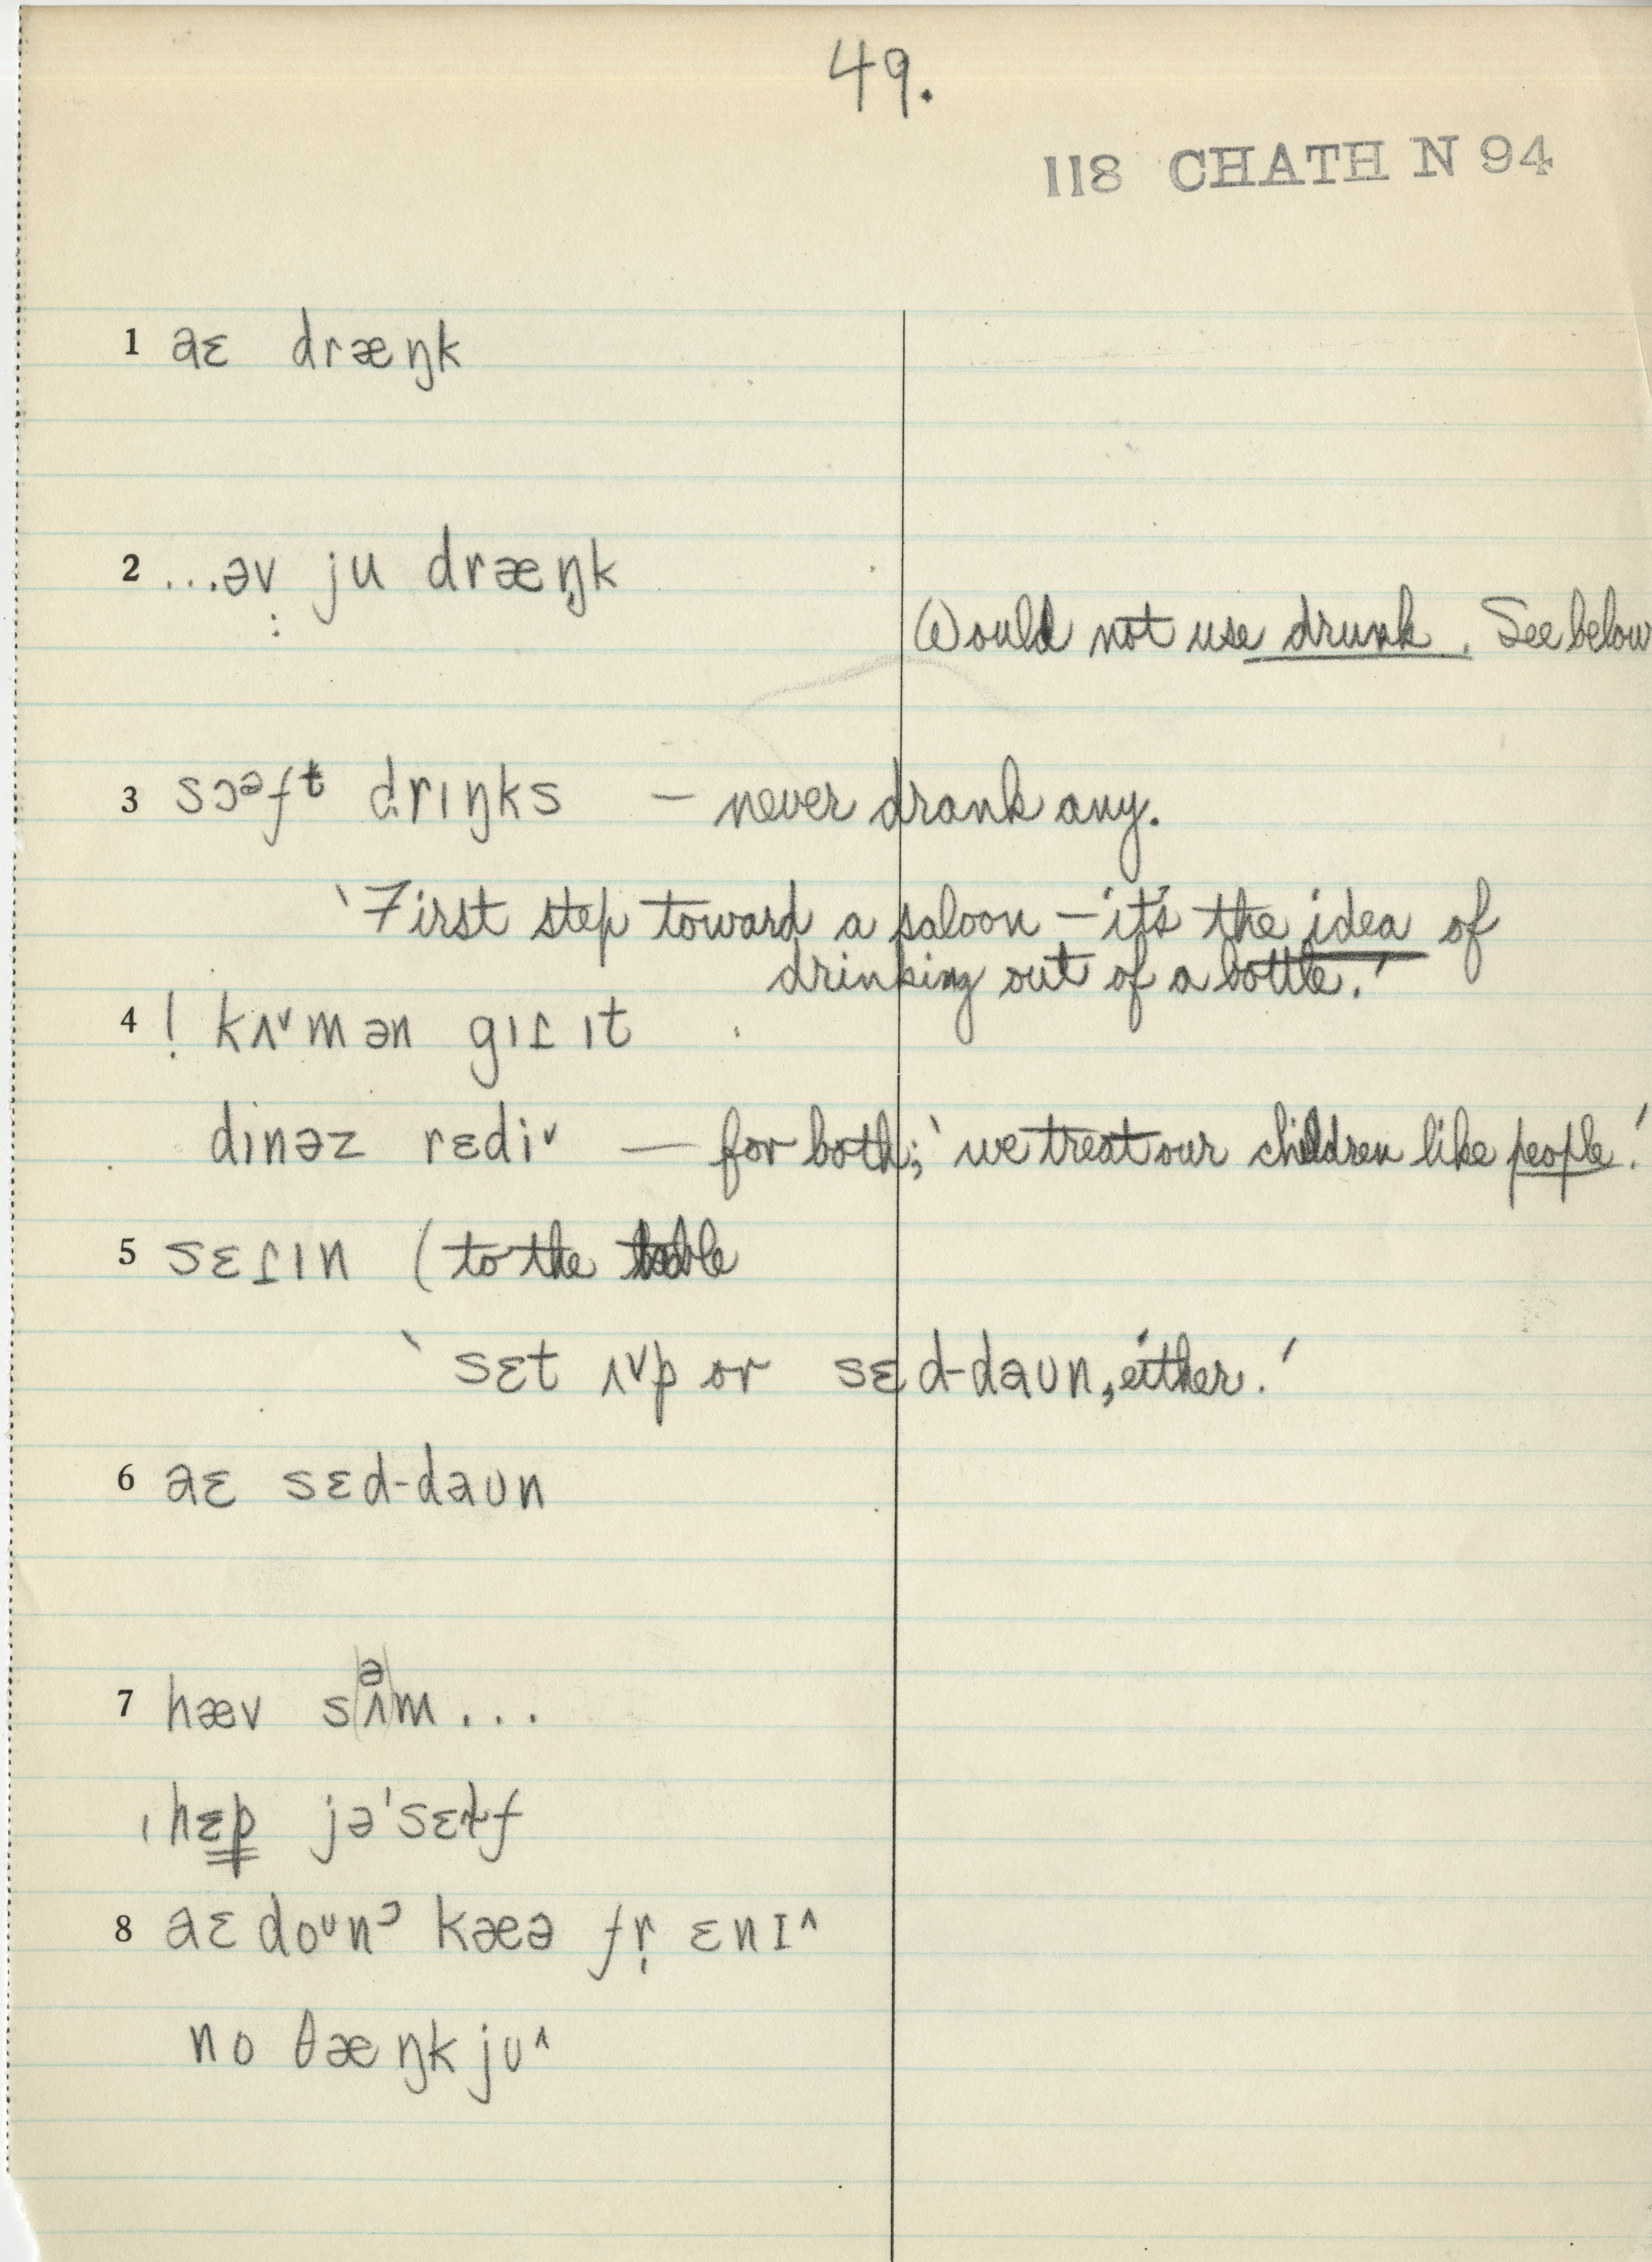 49.
118 CHATH N 94
1 aɛ dræŋk
2 ...əv ju dræŋk
Would not use drunk. See below
3 sɔᵊfᵗ drɪŋks — never drank any.
‵First step toward a saloon — it's the idea of
drinking out of a bottle.′
4 ! kʌᵛm ən gɪɾ ɪt
dɪnəz rɛdiᵛ — for both; ‵we treat our children like people.′
5 sɛɾɪn (to the table
‵sɛt ʌᵛp or sɛd-daun, either.′
6 aɛ sɛd-daun
7 hæv s(ə̂ʌ)m...
ˌhɛp jəˈsɛɫf
8 aɛ doᵘnᵓ kæə fr̩ ɛnɪ^
no θæŋk ju^